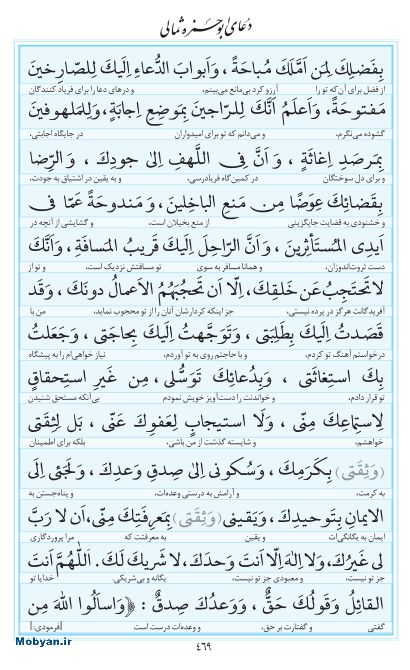 دعای ابوحمزه ثمالی
بِفَضلِكَ لِمَن اَمَّلَكَ مُباحَةً ، وَاَبوابَ الدُّعاءِ اِلَيكَ لِلصّارِخينَ
از فضل برای آن‌که تو را آرزو کرد بی‌مانع می‌بینم، و درهای دعا را برای فریاد کنندگان
مَفتوحَةً، وَاَعلَمُ اَنَّكَ لِلرّاجينَ بِمَوضِعِ اِجابَةٍ، وَلِلمَلهوفينَ
گشوده می‌نگرم، و می‌دانم که تو برای امیدواران در جایگاه اجابتی،
بِمَرصَدِ اِغاثَةٍ ، وَ اَنَّ فِى اللَّهفِ اِلىٰ جودِكَ ، وَ الرِّضا
و برای دل سوختگان در کمین‌گاه فریادرسی، و به یقین در اشتیاق به جودت،
بِقَضائِكَ عِوَضًا مِن مَنعِ الباخِلينَ، وَ مَندوحَةً عَمّا فى
و خشنودی به قضایت جایگزینی از منع بخیلان است، و گشایشی از آنچه در
اَيدِى المُستَأثِرينَ ، وَاَنَّ الرّاحِلَ اِلَيكَ قَريبُ المَسافَةِ ، وَاَنَّكَ
دست ثروت‌اندوزان، و همانا مسافر به سوی تو مسافتش نزدیک است، و تو از
لاتَحتَجِبُ عَن خَلقِكَ، اِلّا اَن تَحجُبَهُمُ الاَعمالُ دونَكَ ، وَقَد
آفریدگانت هرگز در پرده نیستی، جز اینکه کردارشان آنان را از تو محجوب نماید، من با
قَصَدتُ اِلَيكَ بِطَلِبَتى ، وَتَوَجَّهتُ اِلَيكَ بِحاجَتى ، وَجَعَلتُ
درخواستم آهنگ تو کردم، و با حاجتم روی به تو آوردم، نیاز خواهی‌ام را به پیشگاه
بِكَ استِغاثَتى ، وَبِدُعائِكَ تَوَسُّلى ، مِن غَيرِ استِحقاقٍ
تو قرار دادم، و خواندنت را دست‌آویز خویش نمودم بی‌آنکه مستحق شنیدن
لِاستِماعِكَ مِنّى ، وَلَا استيجابٍ لِعَفوِكَ عَنّى ، بَل لِثِقَتى
خواهشم، و شایسته گذشت از من باشی، بلکه برای اطمینان
(وَثِقَتى) بِكَرَمِكَ ، وَسُكونى اِلىٰ صِدقِ وَعدِكَ ، وَلَجَئى اِلَى
به کرمت، و آرامش به درستی وعده‌ات، و پناه‌جستن به
الايمانِ بِتَوحيدِكَ ، وَيَقينى (وَثِقَتى) بِمَعرِفَتِكَ مِنّى، اَن لا رَبَّ
ایمان به یگانگی‌ات و یقین به معرفتت که مرا پروردگاری
لى غَيرُكَ، وَلا اِلٰهَ اِلّا اَنتَ وَحدَكَ، لا شَريكَ لَكَ. اَللّٰهُمَّ اَنتَ
جز تو نیست، و معبودی جز تو نیست، یگانه و بی‌شریکی. خدایا تو
القائِلُ وَقَولُكَ حَقٌّ ، وَوَعدُكَ صِدقٌ : ﴿وَاسأَلُوا اللّٰهَ مِن
گفتی و گفتارت بر حق، و وعده‌ات درست است [فرمودی:]
۴۶۹
Mobyan.ir